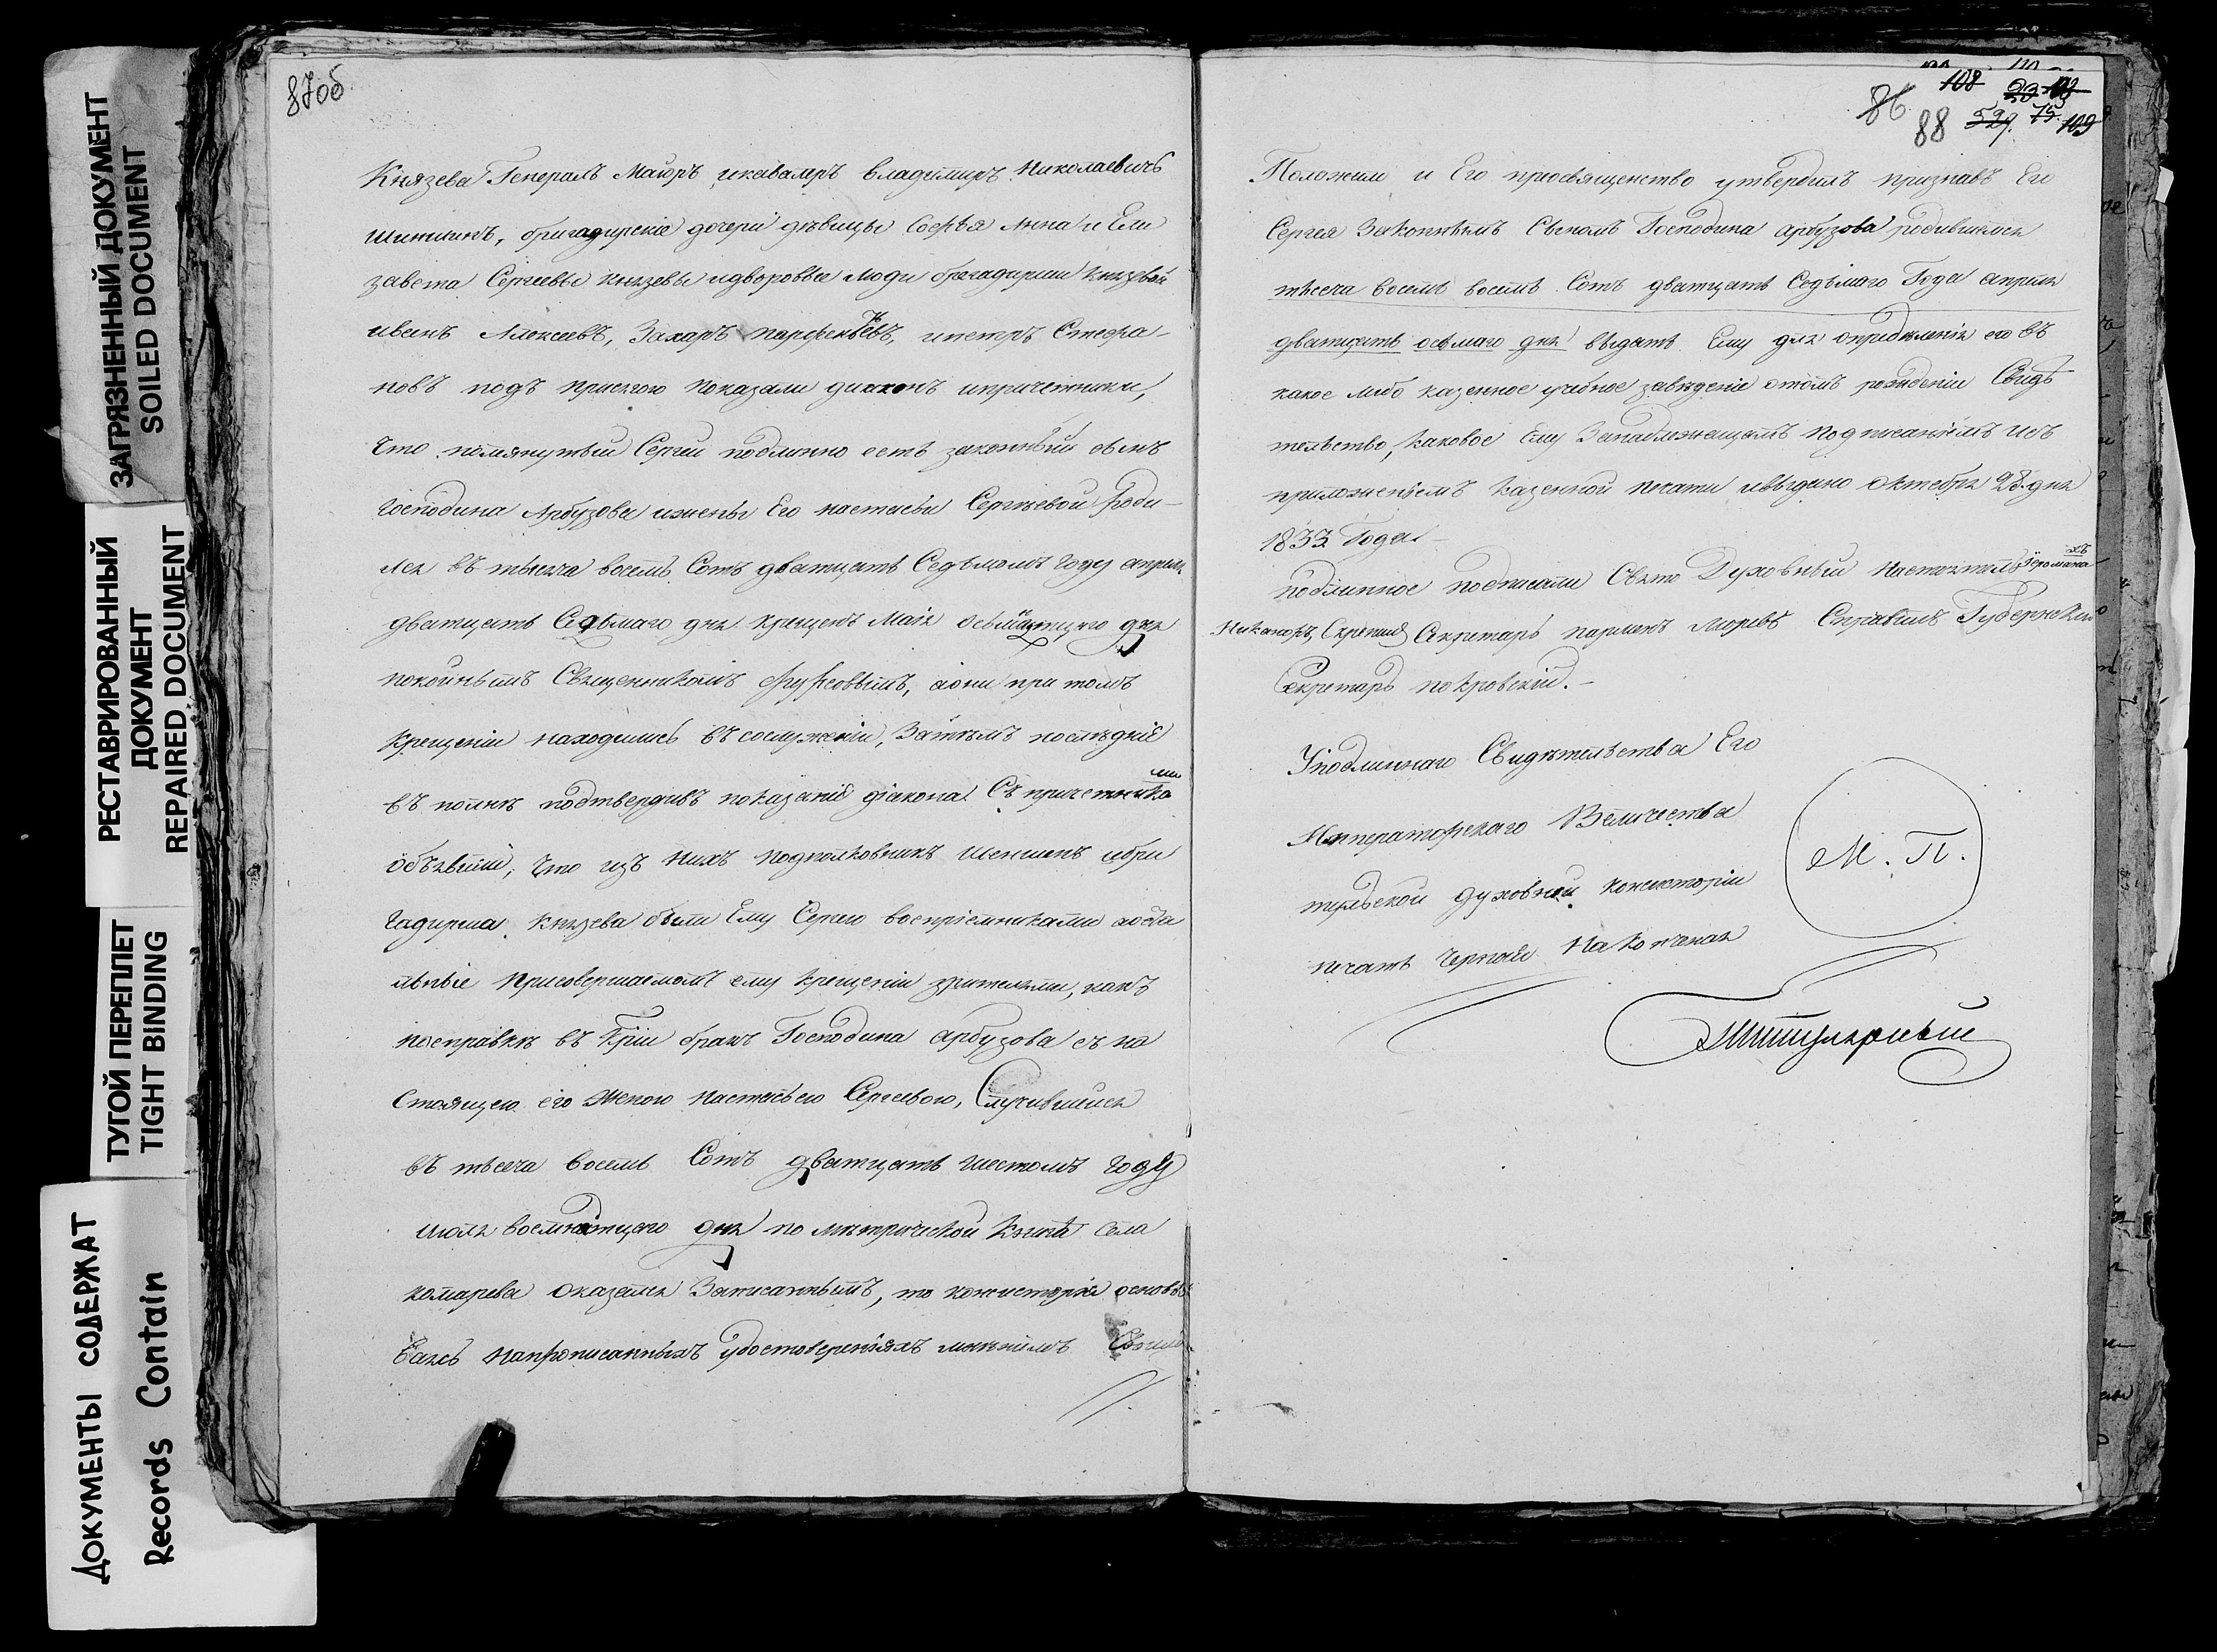 ЗАГРЯЗНЕННЫЙ ДОКУМЕНТ
SOILED DOCUMENT
РЕСТАВРИРОВАННЫЙ
ДОКУМЕНТ
REPAIRED DOCUMENT
ТУГОЙ ПЕРЕПЛЕТ
TIGHT BINDING
ДОКУМЕНТЫ СОДЕРЖАТ
Records Contain
87об
Князева Генералъ Маіоръ икавалеръ владимиръ Николаевичъ
Шиншинъ, бригадирскіе дочери дѣвицы Софья Анна и Ели
завета Сергѣевы князевы идворовые люди бригадирши князевой
иванъ Алексеевъ, Захаръ парфеньевъ, ипетръ Стефа-
новъ подъ присягою показали диаконъ ипричетники,
что помянутый Сергей подлинно есть законный сынъ
господина Арбузова ижены Его настасьи Сергѣевой роди-
лся въ тысяча восемь Сотъ дватцать Седьмомъ году апреля
дватцать Седьмаго дня крещенъ Маія осьмнатцаго дня
покойнымъ Священникомъ, аони при томъ
Крещеніи находились въ сослуженіи, Затѣмъ послѣдніе
въ полнѣ подтвердивъ показаніе діакона Съ причетниками
объявили, что изъ нихъ подполковникъ Шеншинъ ибри
гадирша Князева были Ему Сергею воспріемниками аоста
льные присовершаемомъ ему крещеніи зрителями, какъ
посправкѣ въ Кріи бракъ Господина арбузова съ на
стоящею его женою настасьею Сергеевою, Случившійся
въ тысяча восемь Сотъ дватцать шестомъ году
июля восемнатцаго дня по метрической книгѣ села
комарева оказался Записаннымъ, то консисторія основы
ваясь напрописанныхъ удостовереніяхъ мнѣніемъ Своимъ
86 108 23 88 529 75 109
Положила и Его преосвященство утвердилъ признавъ Его
Сергея Законнымъ Сыномъ Господина арбузова родившимся
тысяча восемь восемь Сотъ дватцать Седьмаго Года апреля
дватцать осьмаго дня выдать Ему для определенія его въ
какое либо казенное учебное заведеніе отомъ рожденіи Свидѣ
тельство, каковое Ему Занадлежащимъ подписаніемъ исъ
приложеніемъ казенной печати ивыдано октября 28. дня
1833 Года
подлинное подписали Свято Духовный Настоятель Іеромонахъ
Никаноръ, Скрепилъ Секретарь парменъ Справилъ Губернскій
Секретарь покровскій.
Уподлиннаго Свидѣтельства Его
Императорскаго Величества
тульской духовной консисторіи
печать черная Наложенная
М. П.
Титулярный